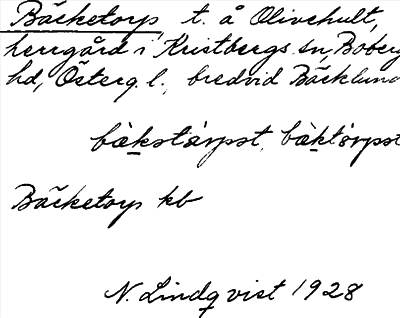 Bäcketorp, t. å Olivehult,
herrgård i Kristbergs sn, Boberg
hd, Österg. l., bredvid Bäcklund
Bäcketorp kb
N. Lindqvist 1928